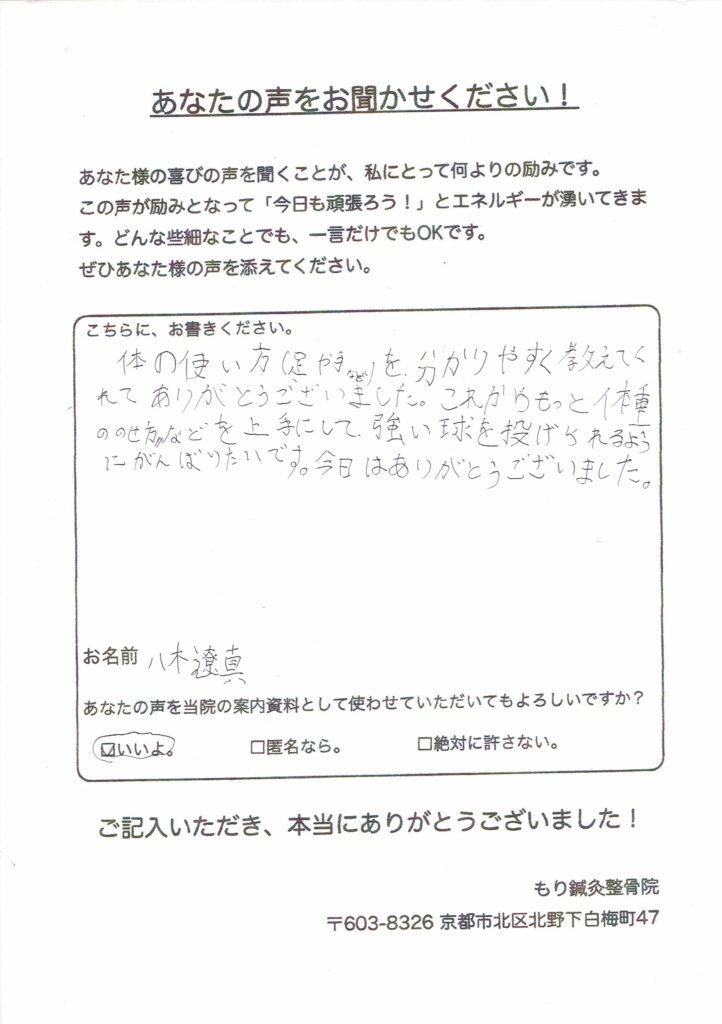 あなたの声をお聞かせください！
あなた様の喜びの声を聞くことが、私にとって何よりの励みです。
この声が励みとなって「今日も頑張ろう！」とエネルギーが湧いてきま
す。どんな些細なことでも、一言だけでもOKです。
ぜひあなた様の声を添えてください。
こちらに、お書きください。
体の使い方(足や手など)を、分かりやすく教えてく
れてありがとうございました。これからもっと体重
ののせ方などを上手にして、強い球を投げられるよう
にがんばりたいです。今日はありがとうございました。
お名前 八木遼真
あなたの声を当院の案内資料として使わせていただいてもよろしいですか？
☑いいよ。 □匿名なら。 □絶対に許さない。
ご記入いただき、本当にありがとうございました！
もり鍼灸整骨院
〒603-8326 京都市北区北野下白梅町47